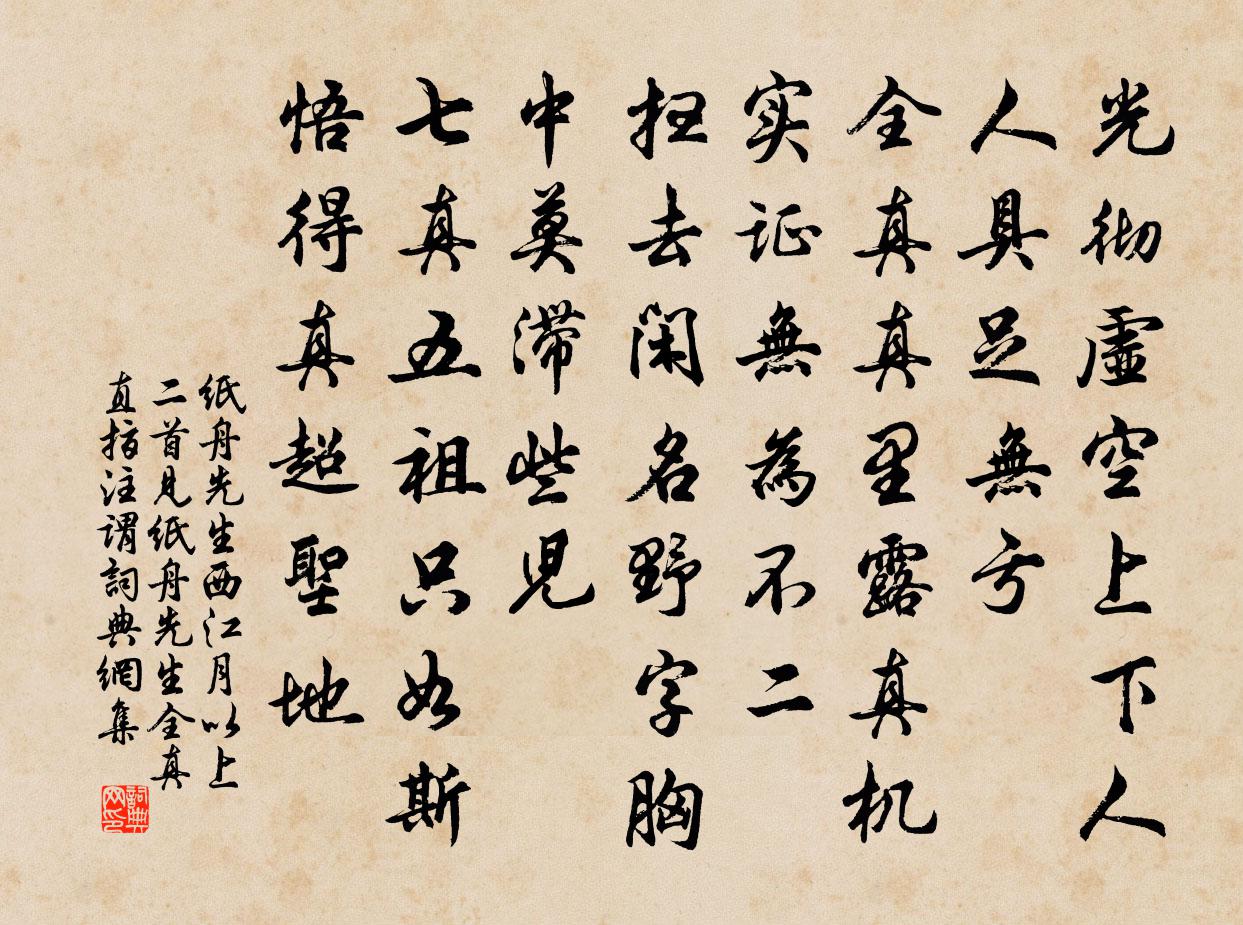 光彻虛空上下人
人具足無亏
全真真里露真机
实证無為不二
扫去闲名野字胸
中莫滞些児
七真五祖只如斯
悟得真超聖地
纸舟先生西江月以上
二首見纸舟先生全真
直指注谓詞典網集
詞典网印